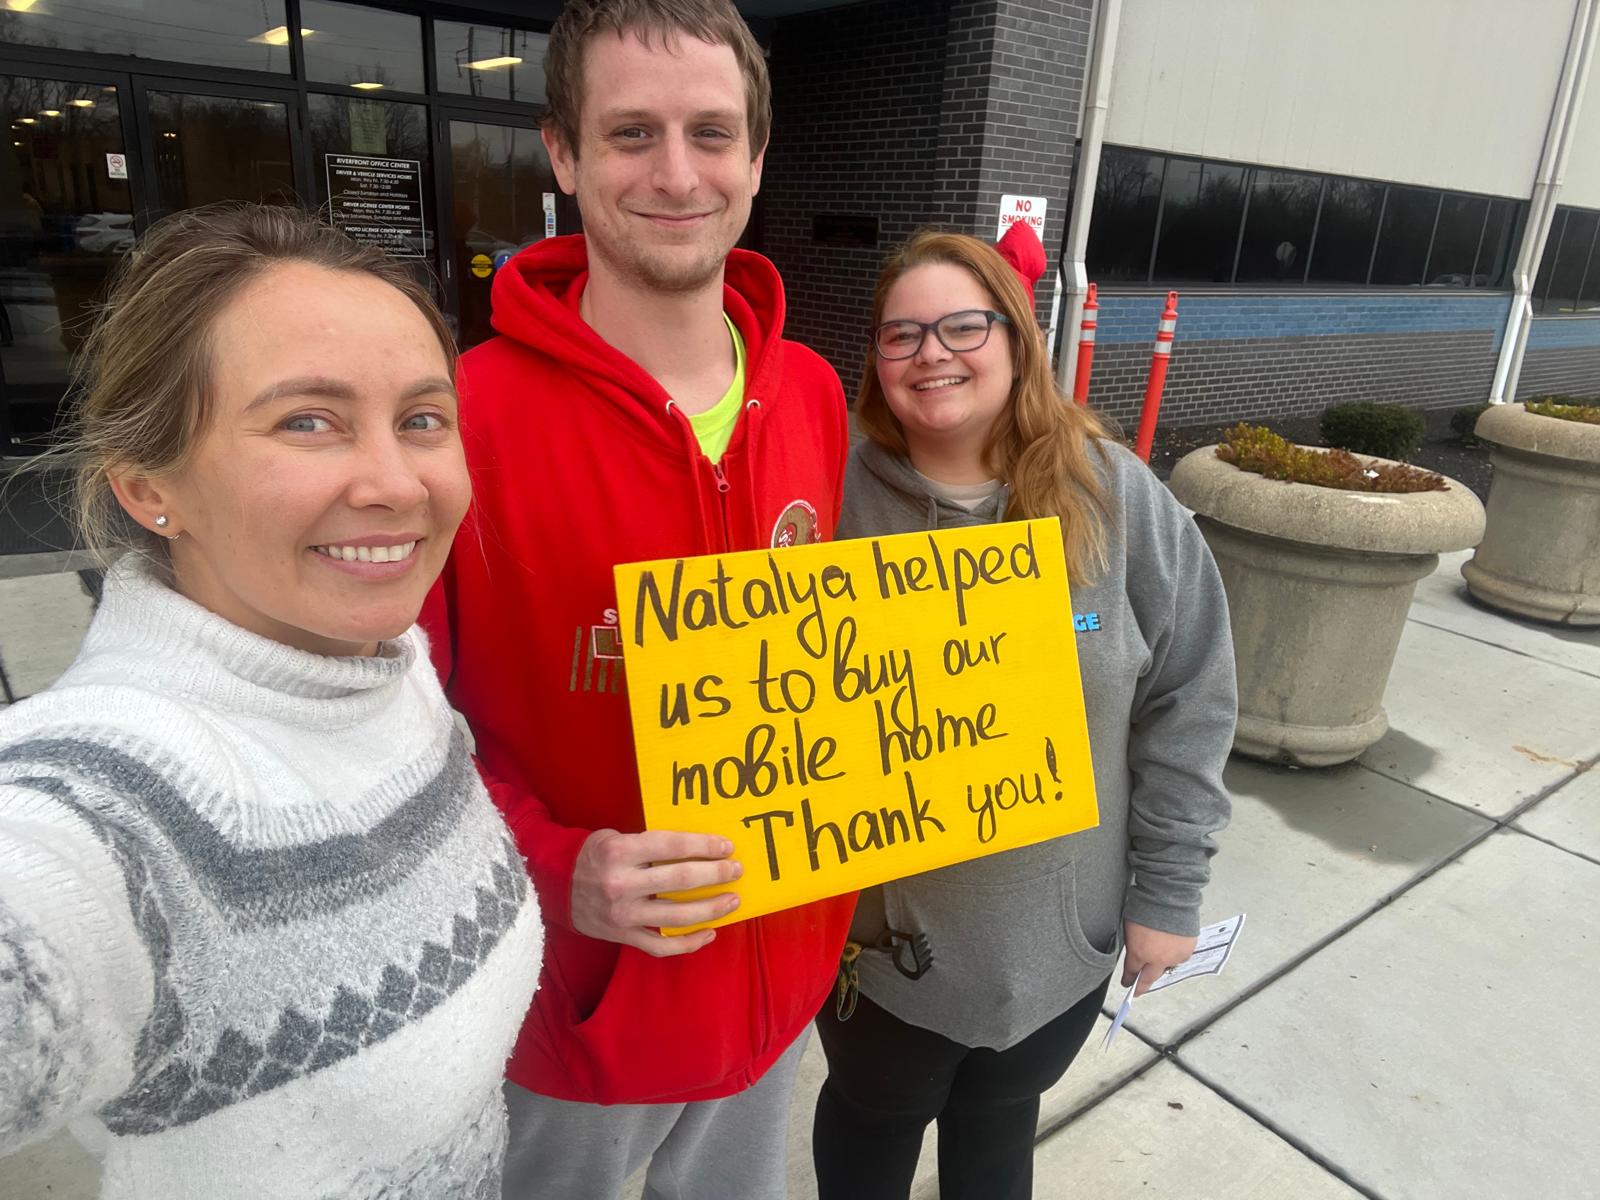 RIVERFRONT OFFICE CENTER
DRIVER & VEHICLE SERVICES HOURS
Mon. thru Fri. 7:30-4:30
Sat. 7:30-12:00
Closed Sundays and Holidays
DRIVER LICENSE CENTER HOURS
Mon. thru Fri. 7:30-4:30
Closed Saturdays, Sundays and Holidays
PHOTO LICENSE CENTER HOURS
NO
SMOKING
Natalya helped
us to buy our
mobile home
Thank you!
GE